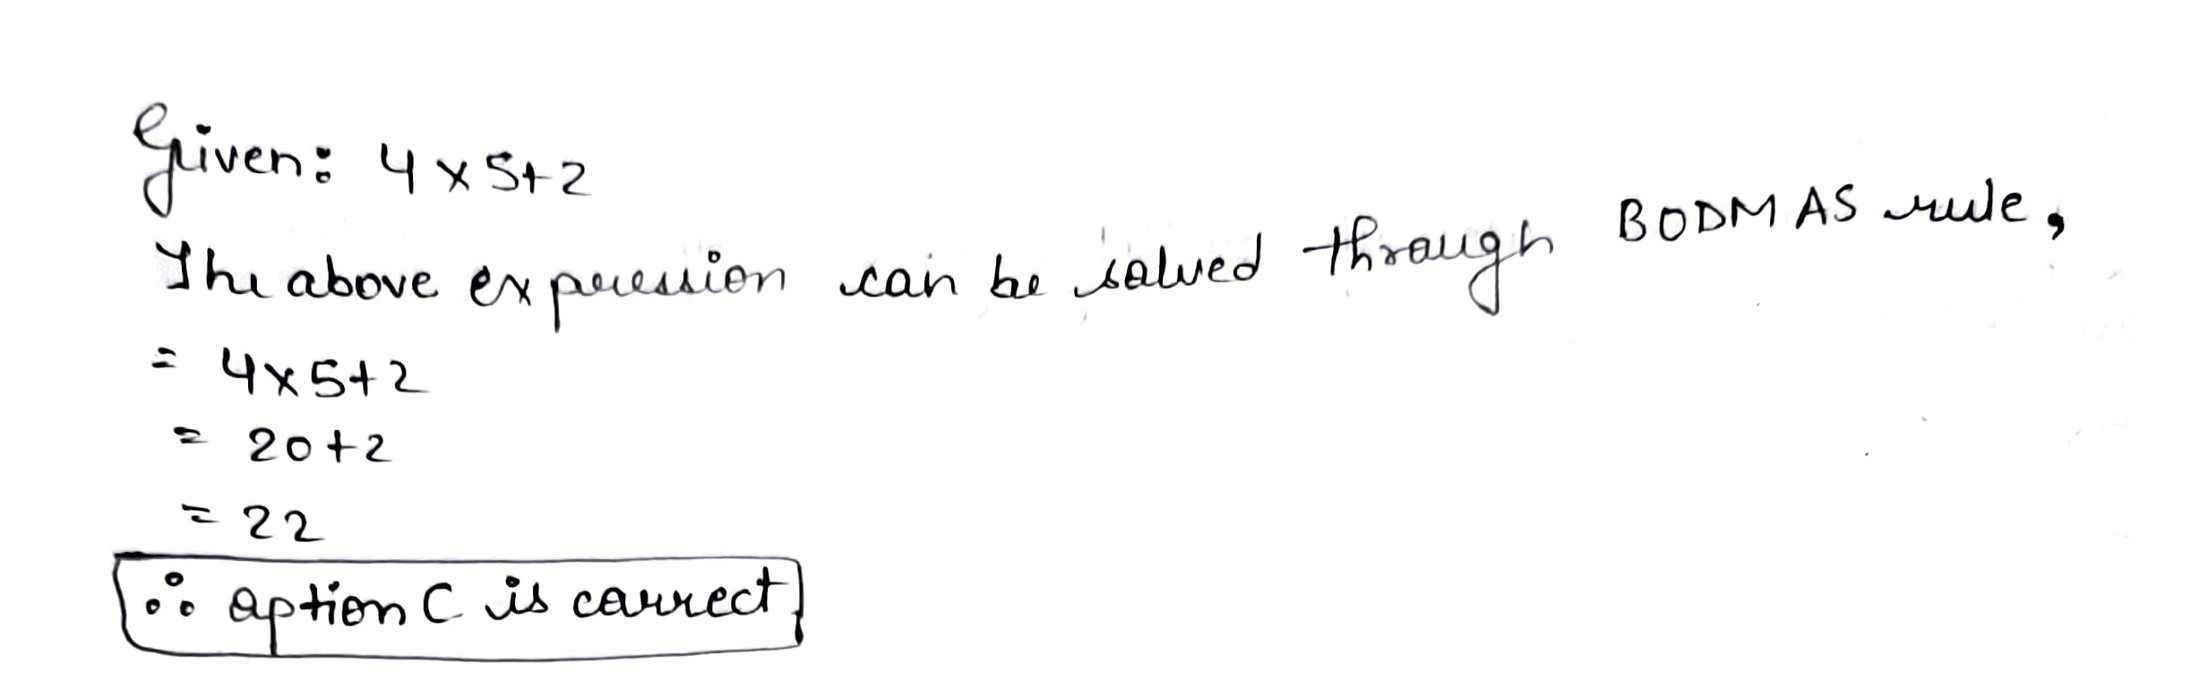 Given: 4 × 5+2
The above expression can be solved through BODMAS rule,
= 4×5+2
= 20+2
= 22
∴ option C is correct